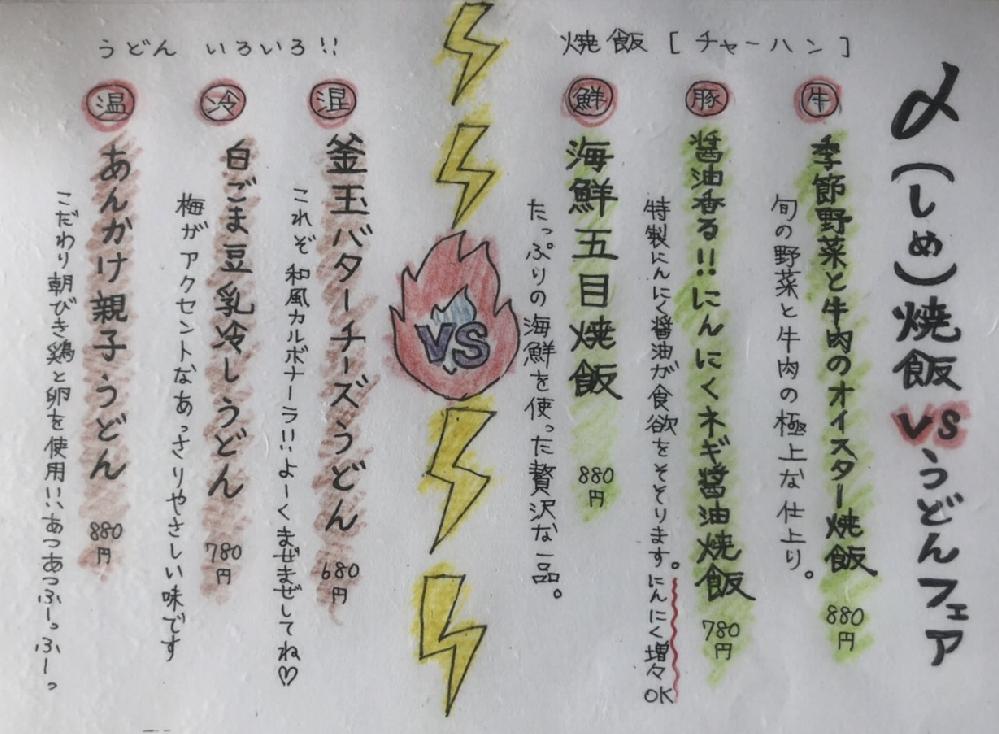 〆(しめ)焼飯VSうどんフェア
焼飯[チャーハン]
牛
季節野菜と牛肉のオイスター焼飯 880円
旬の野菜と牛肉の極上な仕上り。
豚
醤油香る!!にんにくネギ醤油焼飯 780円
特製にんにく醤油が食欲をそそります。にんにく増々OK
鮮
海鮮五目焼飯 880円
たっぷりの海鮮を使った贅沢な一品。
VS
うどん いろいろ!!
混
釜玉バターチーズうどん 680円
これぞ和風カルボナーラ!!よーくまぜまぜしてね♡
冷
白ごま豆乳冷しうどん 780円
梅がアクセントなあっさりやさしい味です
温
あんかけ親子うどん 880円
こだわり朝びき鶏と卵を使用!!あつあつふーっふーっ